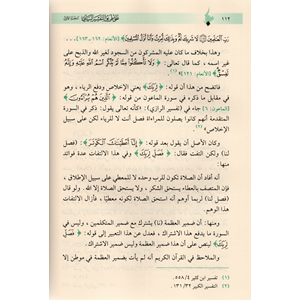 ١١٢ على طريق التفسير البياني الجزء الأول
رَبِّ الْعَالَمِينَ لَا شَرِيكَ لَهُ وَبِذَلِكَ أُمِرْتُ وَأَنَا أَوَّلُ الْمُسْلِمِينَ [الأنعام: ١٦٢، ١٦٣] . . .
وهذا بخلاف ما كان عليه المشركون من السجود لغير الله والذبح على
غير اسمه، كما قال تعالى: ﴿ وَلَا تَأْكُلُوا مِمَّا لَمْ يُذْكَرِ اسْمُ اللَّهِ عَلَيْهِ وَإِنَّهُ
لَفِسْقٌ ﴾ [الأنعام: ١٢١] (١)
فاتضح من هذا أن قوله: ﴿ لِرَبِّكَ ﴾ يعني الإخلاص ودفع الرياء، وهو
في مقابل ما ذكره في سورة الماعون من قوله: ﴿ الَّذِينَ هُمْ يُرَاءُونَ ﴾
[الماعون: ٦] جاء في (تفسير الرازي): «كأنه تعالى يقول: ذكر في السورة
المتقدمة أنهم كانوا يصلون للمراءاة فصل أنت لا للرياء لكن على سبيل
الإخلاص» (٢).
وكان الأصل أن يقول بعد قوله: ﴿ إِنَّا أَعْطَيْنَاكَ الْكَوْثَرَ ﴾: (فصل
لنا) ولكن التفت فقال: ﴿ فَصَلِّ لِرَبِّكَ ﴾ وفي هذا الالتفات عدة فوائد
منها:
أنه أفاد أن الصلاة تكون للرب وحده لا للمعطي على سبيل الإطلاق،
فإن المتصف بالعطاء يستحق الشكر، ولا يستحق الصلاة إلا الله. ولو قال
(فصل لنا) لأوهم أن الصلاة إنما تستحق لكونه معطيًا، فأزال الالتفات
هذا الوهم.
ومنها: أن ضمير العظمة (نا) يشترك مع ضمير المتكلمين، وليس في
السورة ما يدفع هذا الاشتراك، فعدل عن هذا التعبير إلى قوله: ﴿ فَصَلِّ
لِرَبِّكَ ﴾ لينص على أن هذا ضمير العظمة وليس ضمير الاشتراك.
والملاحظ في القرآن الكريم أنه لم يأت بضمير العظمة في موطن إلا
(١) تفسير ابن كثير ٤/ ٥٥٨.
(٢) التفسير الكبير ٣٢/ ١٣١.